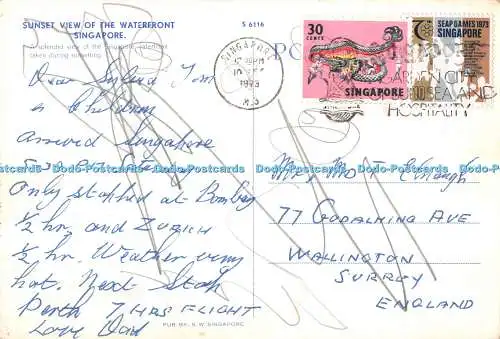 SUNSET VIEW OF THE WATERFRONT
SINGAPORE.
A splendid view of the Singapore waterfront
taken during something.
S 6116
30
CENTS
SINGAPORE
SEAP GAMES 1973
SINGAPORE
10
SINGAPORE
1973
GARDEN CITY
OF SUN SEA AND
HOSPITALITY
Dear Sylvia Tom
& Children
arrived Singapore
Only stopped at Bombay
1/2 hr, and ZURICH
1/2 hr. Weather very
hot. Next Stop
Perth 7 HRS FLIGHT
Love Dad
Mr & Mrs T
77 GODALMING AVE
WALLINGTON
SURREY
ENGLAND
PUB BY: S.W. SINGAPORE
Dodo-Postcards Dodo-Postcards Dodo-Postcards Dodo-Postcards Dodo-Postcards Dodo-Postcards